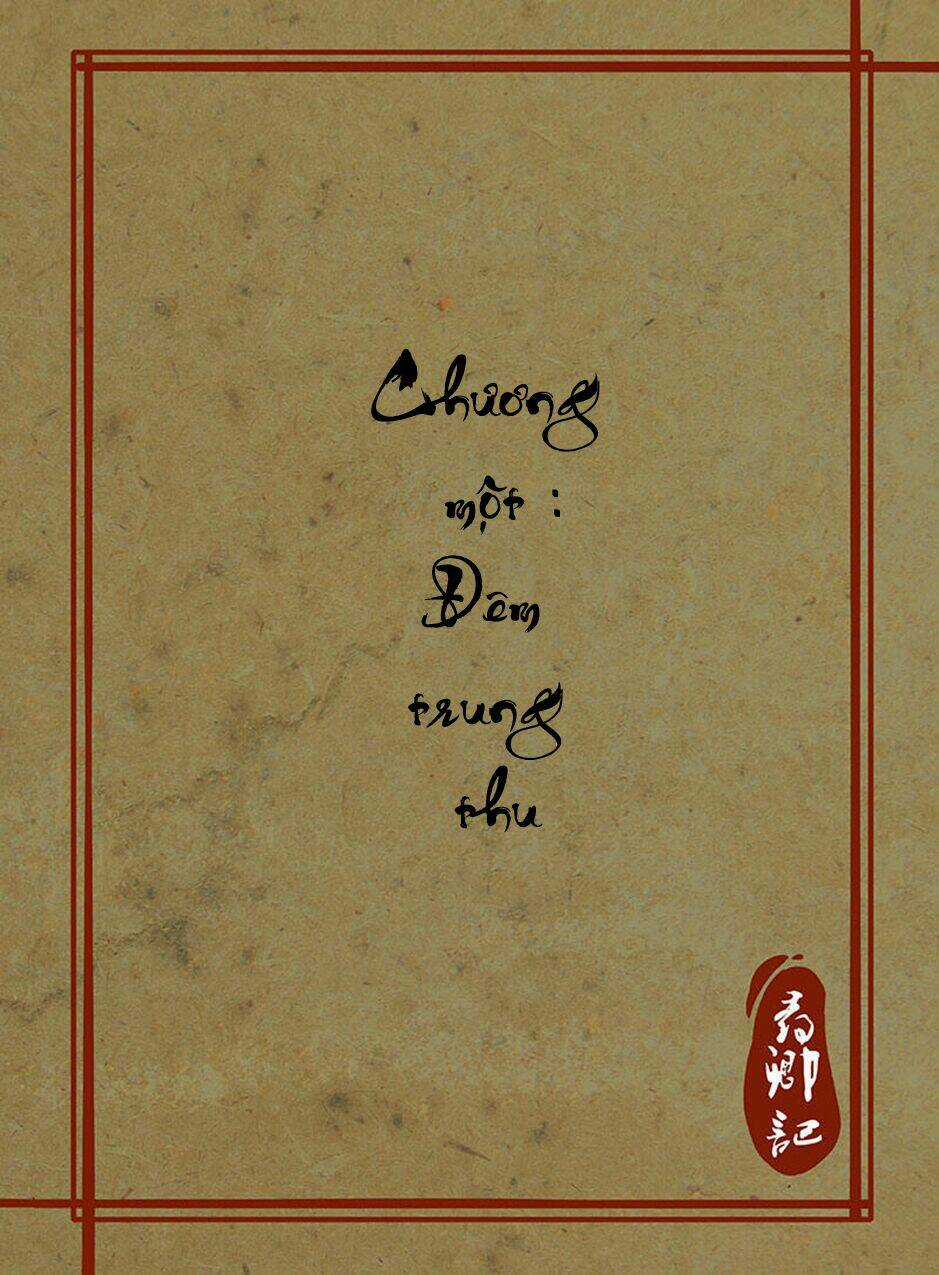 Chương
một :
Đêm
trung
thu
尋卿記